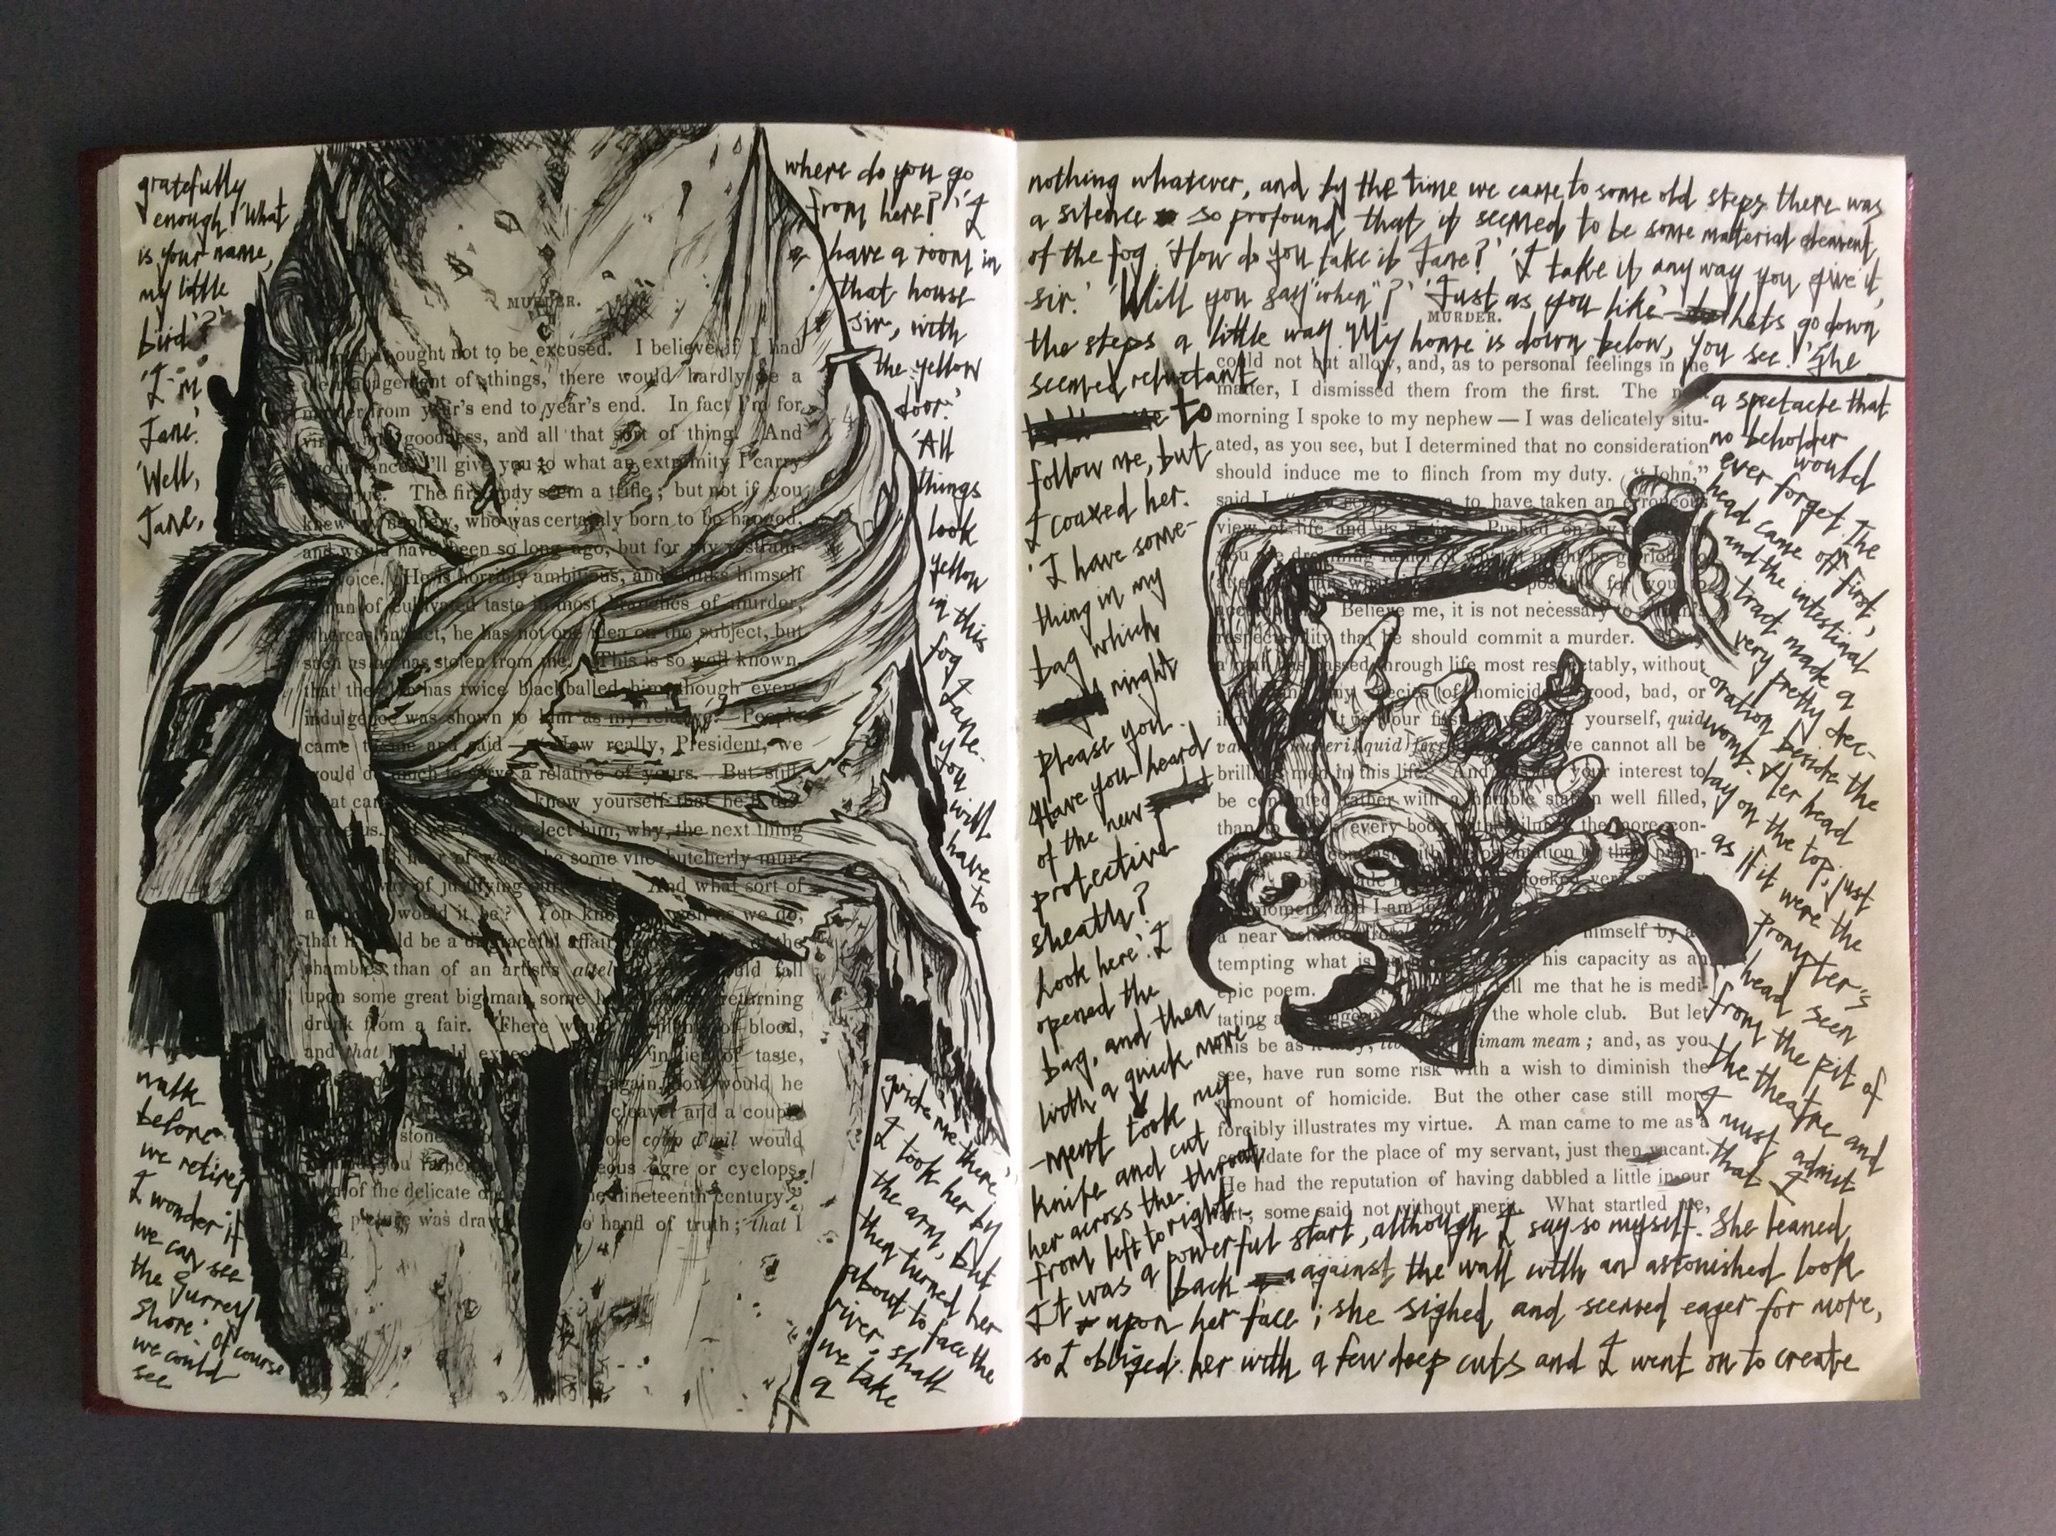 gratefully
enough. 'What
is your name,
my little
bird'?
'I'm
Jane.'
'Well,
Jane,
where do you go
from here?' 'I
have a room in
that house
sir, with
the yellow
door.'
'All
things
look
yellow
in this
fog Jane.
You
will
have
to
guide me there,'
I took her by
the arm, but
then turned her
about to face the
river. 'shall
we take
a
walk
before
we retire?
I wonder if
we can see
the Surrey
Shore.' Of course
we could
see
MURDER.
ought not to be excused. I believe if I had
management of things, there would hardly be a
murder from year's end to year's end. In fact I'm for
goodness, and all that sort of thing. And
I'll give you to what an extremity I carry
The first may seem a trifle; but not if you
knew my nephew, who was certainly born to be hanged,
and would have been so long ago, but for my restrain-
voice. He is horribly ambitious, and thinks himself
man of cultivated taste in most branches of murder,
whereas, in fact, he has not one idea on the subject, but
such as he has stolen from me. This is so well known,
that the has twice blackballed him, though every
indulgence was shown to him as my relative. People
came to me and said — Now really, President, we
would do much to serve a relative of yours. But still,
what can know yourself that he'll
us. If we were to elect him, why, the next thing
hear of would be some vile butcherly mur-
way of justifying And what sort of
a would it be? You know, as well as we do,
that it would be a disgraceful affair of the
shambles than of an artist's would fall
upon some great big man, some returning
drunk from a fair. There would plenty of blood,
and that he would expect in lieu of taste,
again, how would he
cleaver and a couple
stones coup d'œil would
you rather ogre or cyclops,
of the delicate nineteenth century?
picture was drawn hand of truth; that I
nothing whatever, and by the time we came to some old steps there was
a silence so profound that it seemed to be some material element
of the fog. 'How do you take it Jane?' 'I take it any way you give it,
sir.' 'Will you say "when"?' 'Just as you like' lets go down
the steps a little way. My home is down below, you see.' She
seemed reluctant
to
follow me, but
I coaxed her.
'I have some-
thing in my
bag which
might
please you.
Have you heard
of the new
protective
sheath?
Look here'. I
opened the
bag, and then
with a quick move-
-ment took my
knife and cut
her across the throat
from left to right.
It was a powerful start, although I say so myself. She leaned
back against the wall with an astonished look
upon her face; she sighed and seemed eager for more,
so I obliged her with a few deep cuts and I went on to create
a spectacle that
no beholder
would
ever forget. The
head came off first,
and the intestinal
tract made a
very pretty dec-
oration beside the
womb. Her head
lay on the top, just
as if it were the
prompter's
head seen
from the pit of
the theatre and
I must admit
that I
MURDER.
could not but allow, and, as to personal feelings in the
matter, I dismissed them from the first. The next
morning I spoke to my nephew — I was delicately situ-
ated, as you see, but I determined that no consideration
should induce me to flinch from my duty. "John,"
said I, to have taken an erroneous
view of life and its duties. Pushed on by
you are dreaming rather of what it might be glorious to
attempt than what possible for you to
Believe me, it is not necessary to a man's
respectability that he should commit a murder.
a man has passed through life most respectably, without
any species of homicide good, bad, or
It is your first duty to yourself, quid
we cannot all be
brilliant men in this life. And your interest to
be contented rather with a humble station well filled,
than every body the more con-
moment, and I am
a near himself by
tempting what is his capacity as an
epic poem. tell me that he is medi-
tating a the whole club. But let
this be as it may, imam meam; and, as you
see, have run some risk with a wish to diminish the
amount of homicide. But the other case still more
forcibly illustrates my virtue. A man came to me as a
candidate for the place of my servant, just then vacant.
He had the reputation of having dabbled a little in our
art; some said not without merit. What startled me,